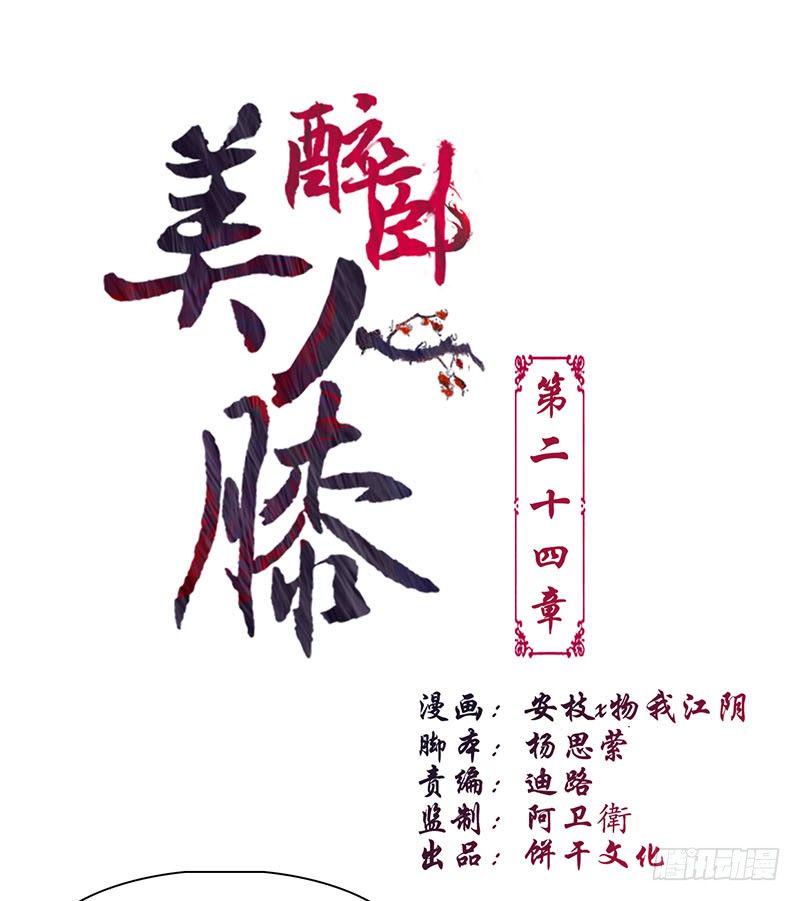 醉卧
美人膝
第二十四章
漫画：安枝x物我江阴
脚本：杨思萦
责编：迪路
监制：阿卫衛
出品：饼干文化
腾讯动漫